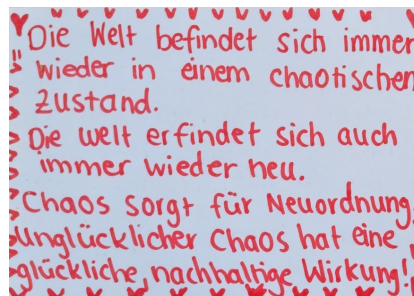 Die Welt befindet sich immer
wieder in einem chaotischen
Zustand.
Die Welt erfindet sich auch
immer wieder neu.
Chaos sorgt für Neuordnung,
unglücklicher Chaos hat eine
glückliche, nachhaltige Wirkung!